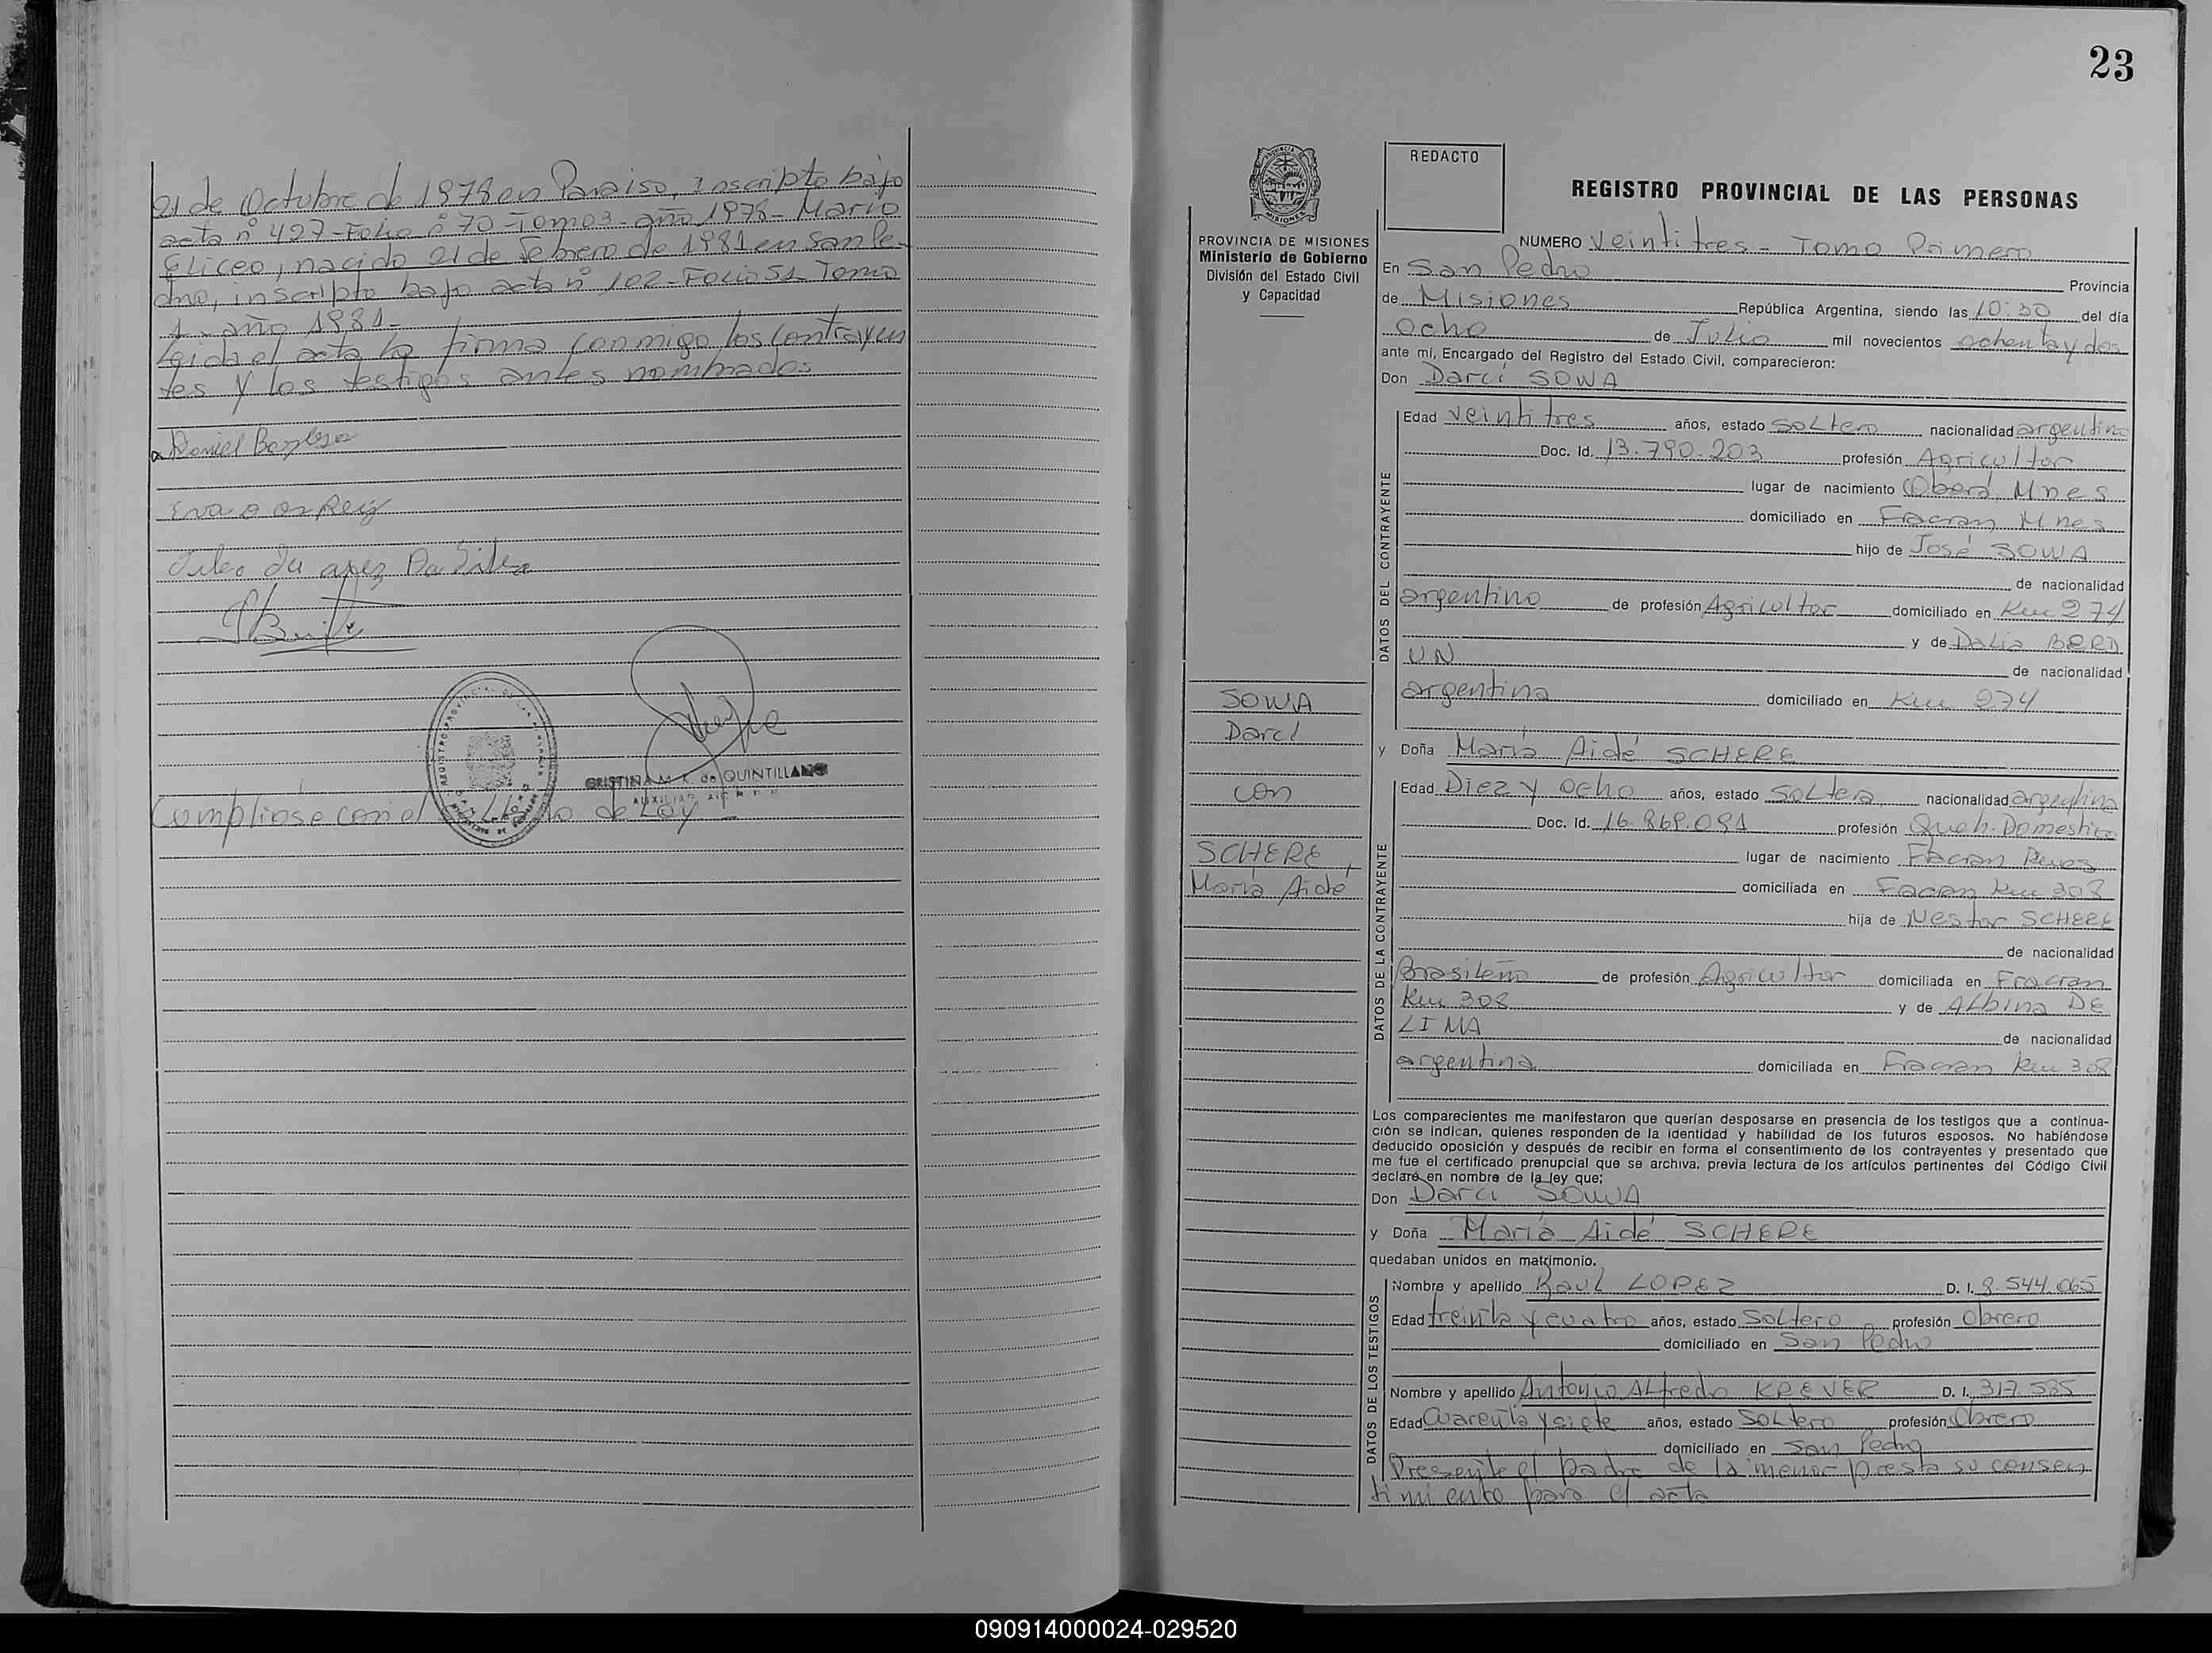 21 de Octubre de 1978 en Paraiso, inscripto bajo
acta nº 427-Folio º 70-Tomo 3-año 1978- Mario
Eliceo, nacido 21 de Febrero de 1981 en San Pe-
dro, inscripto bajo acta nº 102-Folio 51 Tomo
1- año 1981-
Leida el acta la firma conmigo los contrayen
tes y los testigos antes nombrados
Daniel
Cumpliose con el de Ley
CRISTINA M. K. de QUINTILLANO
23
PROVINCIA DE MISIONES
Ministerio de Gobierno
División del Estado Civil
y Capacidad
SOWA
Darci
con
SCHERE,
María Aidé
REDACTO
REGISTRO PROVINCIAL DE LAS PERSONAS
NUMERO Veintitres - Tomo Primero
En San Pedro Provincia
de Misiones República Argentina, siendo las 10:30 del día
ocho de Julio mil novecientos ochenta y dos
ante mí, Encargado del Registro del Estado Civil, comparecieron:
Don Darci SOWA
DATOS DEL CONTRAYENTE
Edad veintitres años, estado soltero nacionalidad argentino
Doc. Id. 13.790.203 profesión Agricultor
lugar de nacimiento Oberá, Mnes
domiciliado en Fracran Mnes
hijo de José SOWA
de nacionalidad
argentino de profesión Agricultor domiciliado en Km 274
y de Dalia BERD
UN de nacionalidad
argentina domiciliado en Km 274
y Doña María Aidé SCHERE
DATOS DE LA CONTRAYENTE
Edad Diez y ocho años, estado soltera nacionalidad argentina
Doc. Id. 16.869.091 profesión Queh. Domestico
lugar de nacimiento Fracran
domiciliada en Fracran Km 308
hija de Nestor SCHERE
de nacionalidad
Brasileño de profesión Agricultor domiciliada en Fracran
Km 308 y de Albina DE
LIMA de nacionalidad
argentina domiciliada en Fracran Km 308
Los comparecientes me manifestaron que querían desposarse en presencia de los testigos que a continua-
ción se indican, quienes responden de la identidad y habilidad de los futuros esposos. No habiéndose
deducido oposición y después de recibir en forma el consentimiento de los contrayentes y presentado que
me fue el certificado prenupcial que se archiva, previa lectura de los artículos pertinentes del Código Civil
declaré en nombre de la ley que;
Don Darci SOWA
y Doña María Aidé SCHERE
quedaban unidos en matrimonio.
DATOS DE LOS TESTIGOS
Nombre y apellido Raul LOPEZ D. I. 8.544.065
Edad treinta y cuatro años, estado Soltero profesión Obrero
domiciliado en San Pedro
Nombre y apellido Antonio Alfredo KREVER D. I. 317.585
Edad Cuarenta y siete años, estado Soltero profesión Obrero
domiciliado en San Pedro
Presente el padre de la menor presta su consen
timiento para el acta
090914000024-029520